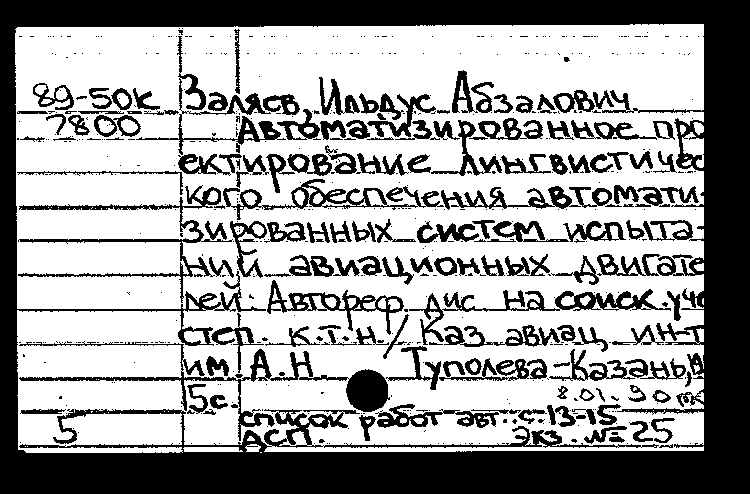 89-50К Заляев, Ильдус Абзалович.
7800 Автоматизированное про
ектирование лингвистичес
кого обеспечения автомати-
зированных систем испыта-
ний авиационных двигате
лей: Автореф. дис. на соиск. уче
степ. к.т.н. / Каз авиац. ин-т
им. А.Н. Туполева-Казань,
15с. 8.01.90
5 список работ авт.: с.13-15
АСП. Экз. №=25